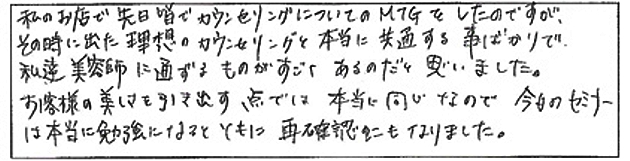 私のお店で先日皆でカウンセリングについてのMTGをしたのですが、
その時に出た理想のカウンセリングと本当に共通する事ばかりで、
私達美容師に通ずるものがすごくあるのだと思いました。
お客様の美しさを引き出す点では本当に同じなので今日のセミナー
は本当に勉強になるとともに再確認にもなりました。